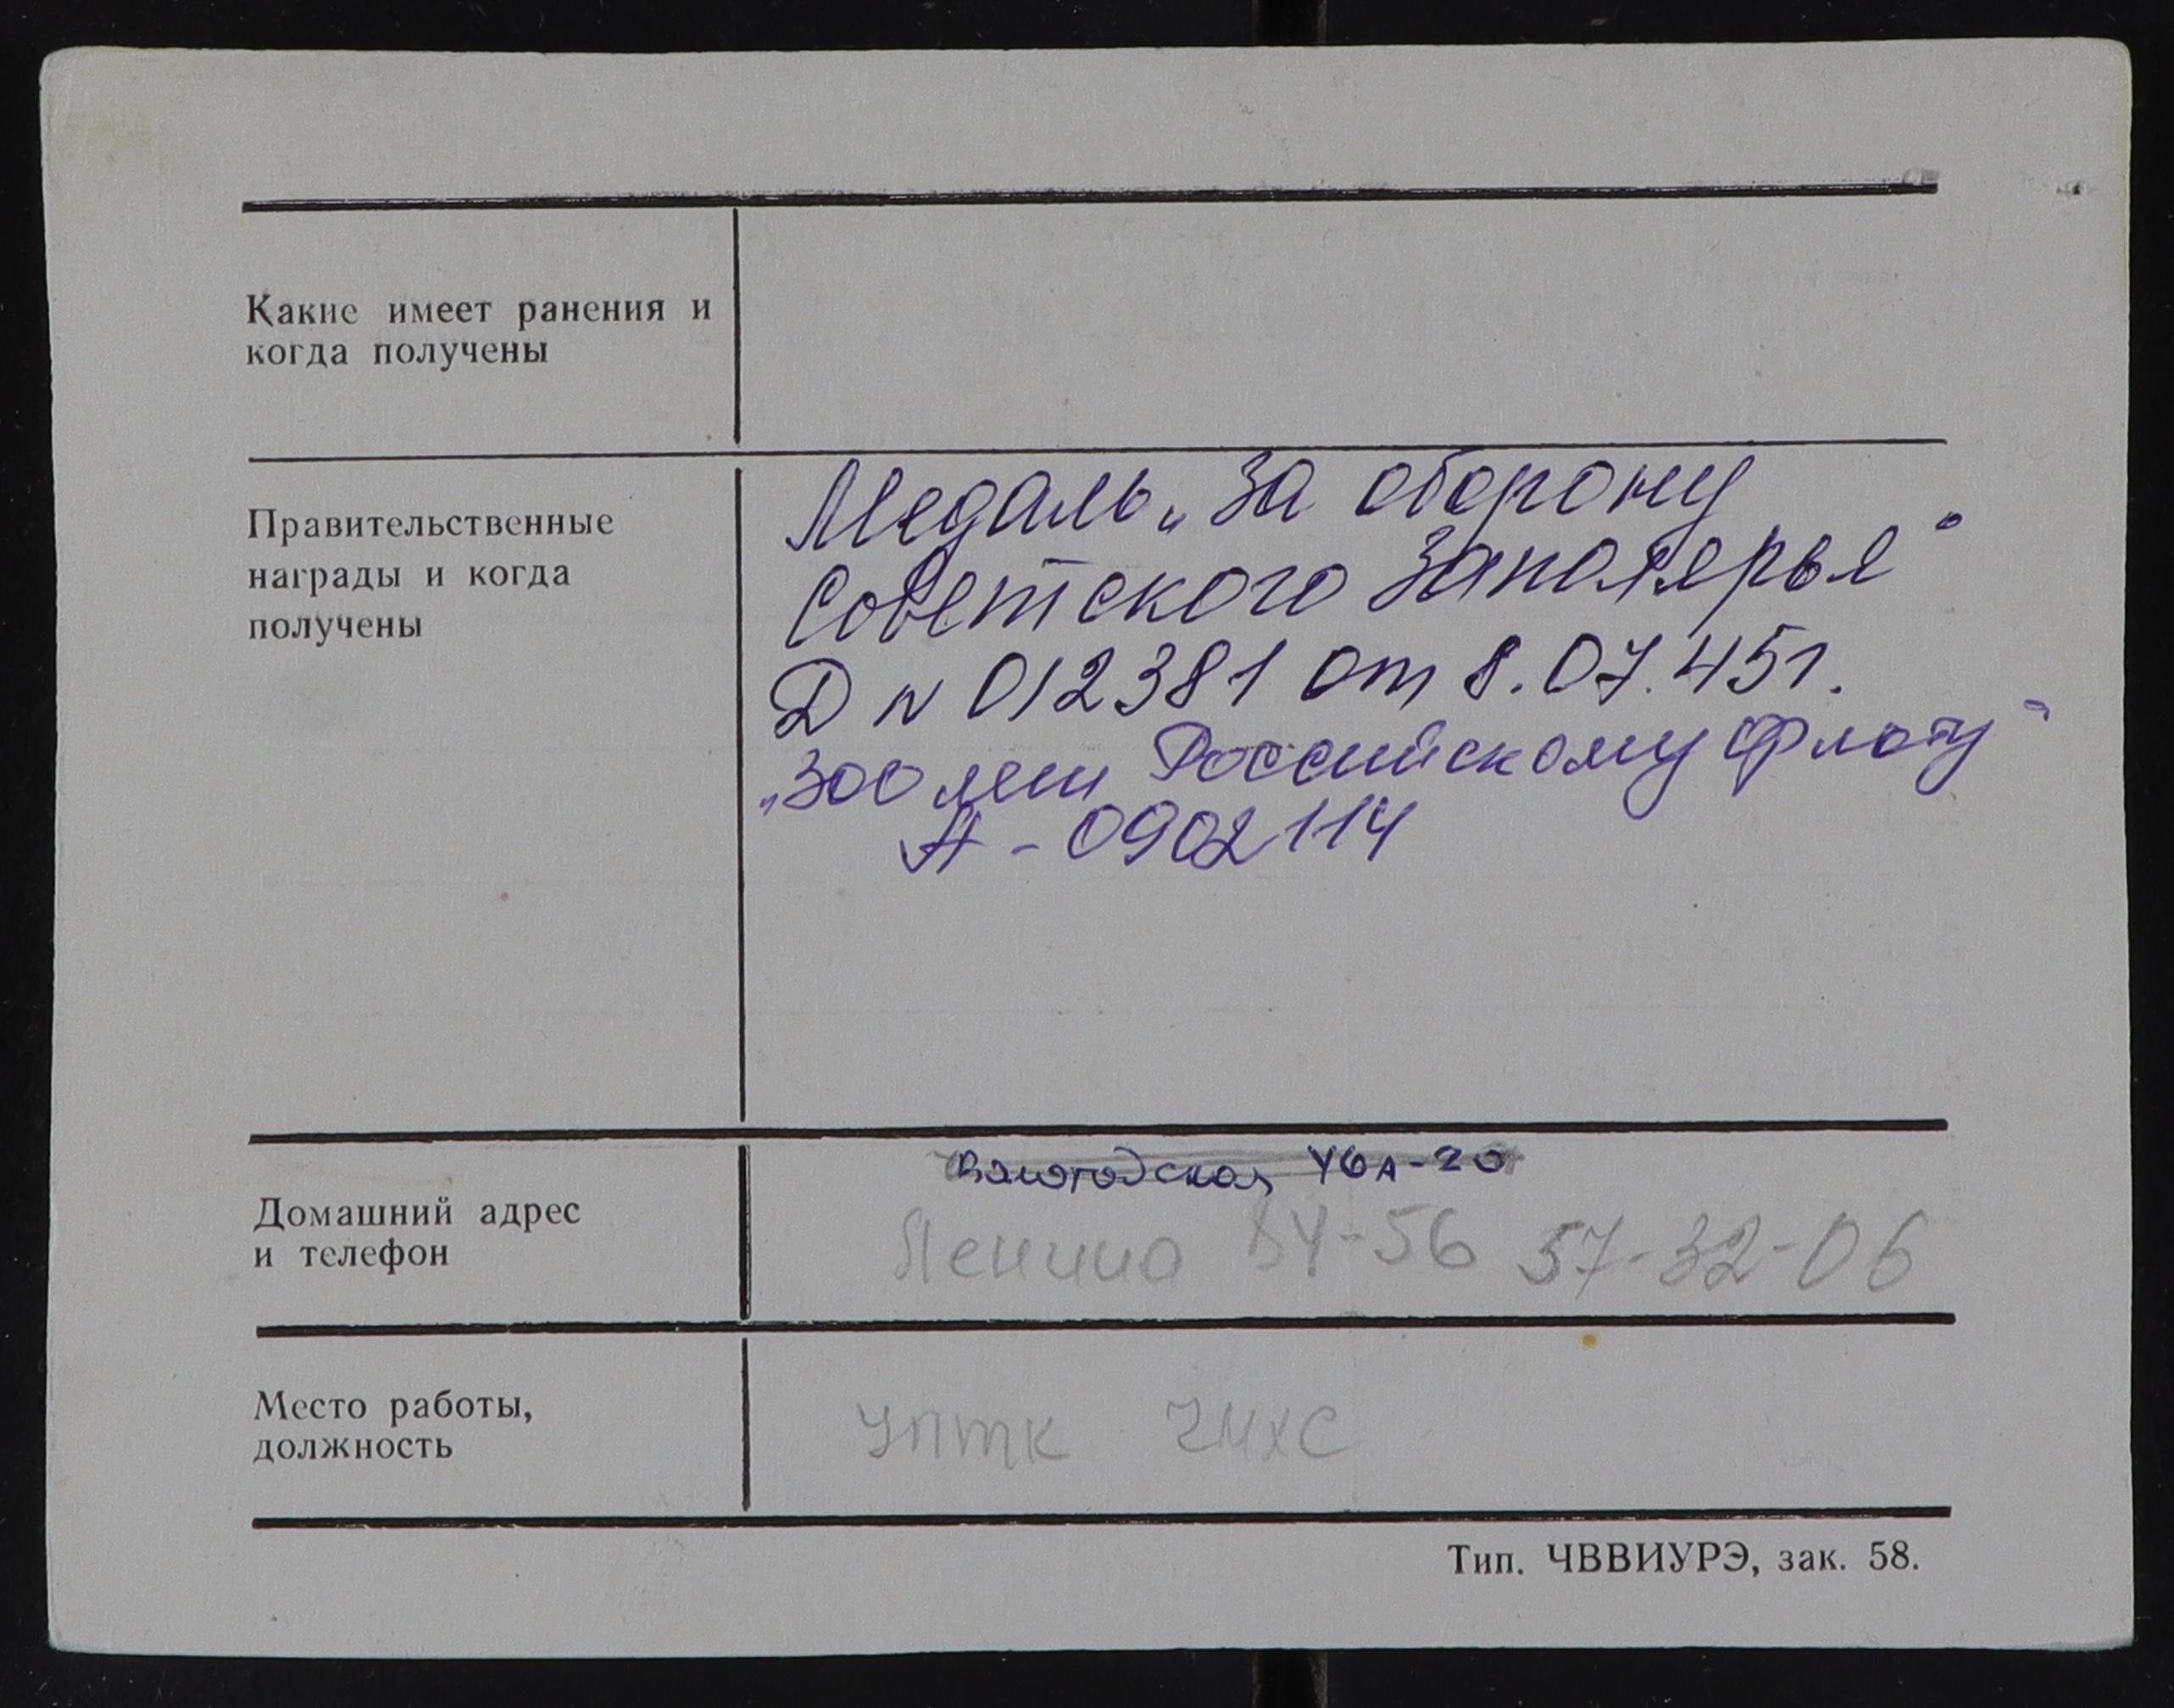 Какие имеет ранения и
когда получены
Правительственные
награды и когда
получены
Медаль „За оборону
Советского Заполярья"
Д N 012381 от 8.07.45г.
„300 лет Российскому флоту"
А - 0902114
Домашний адрес
и телефон
Вологодская 46А-20
Ленина 54-56 57-32-06
Место работы,
должность
УПТК ЧМХС
Тип. ЧВВИУРЭ, зак. 58.